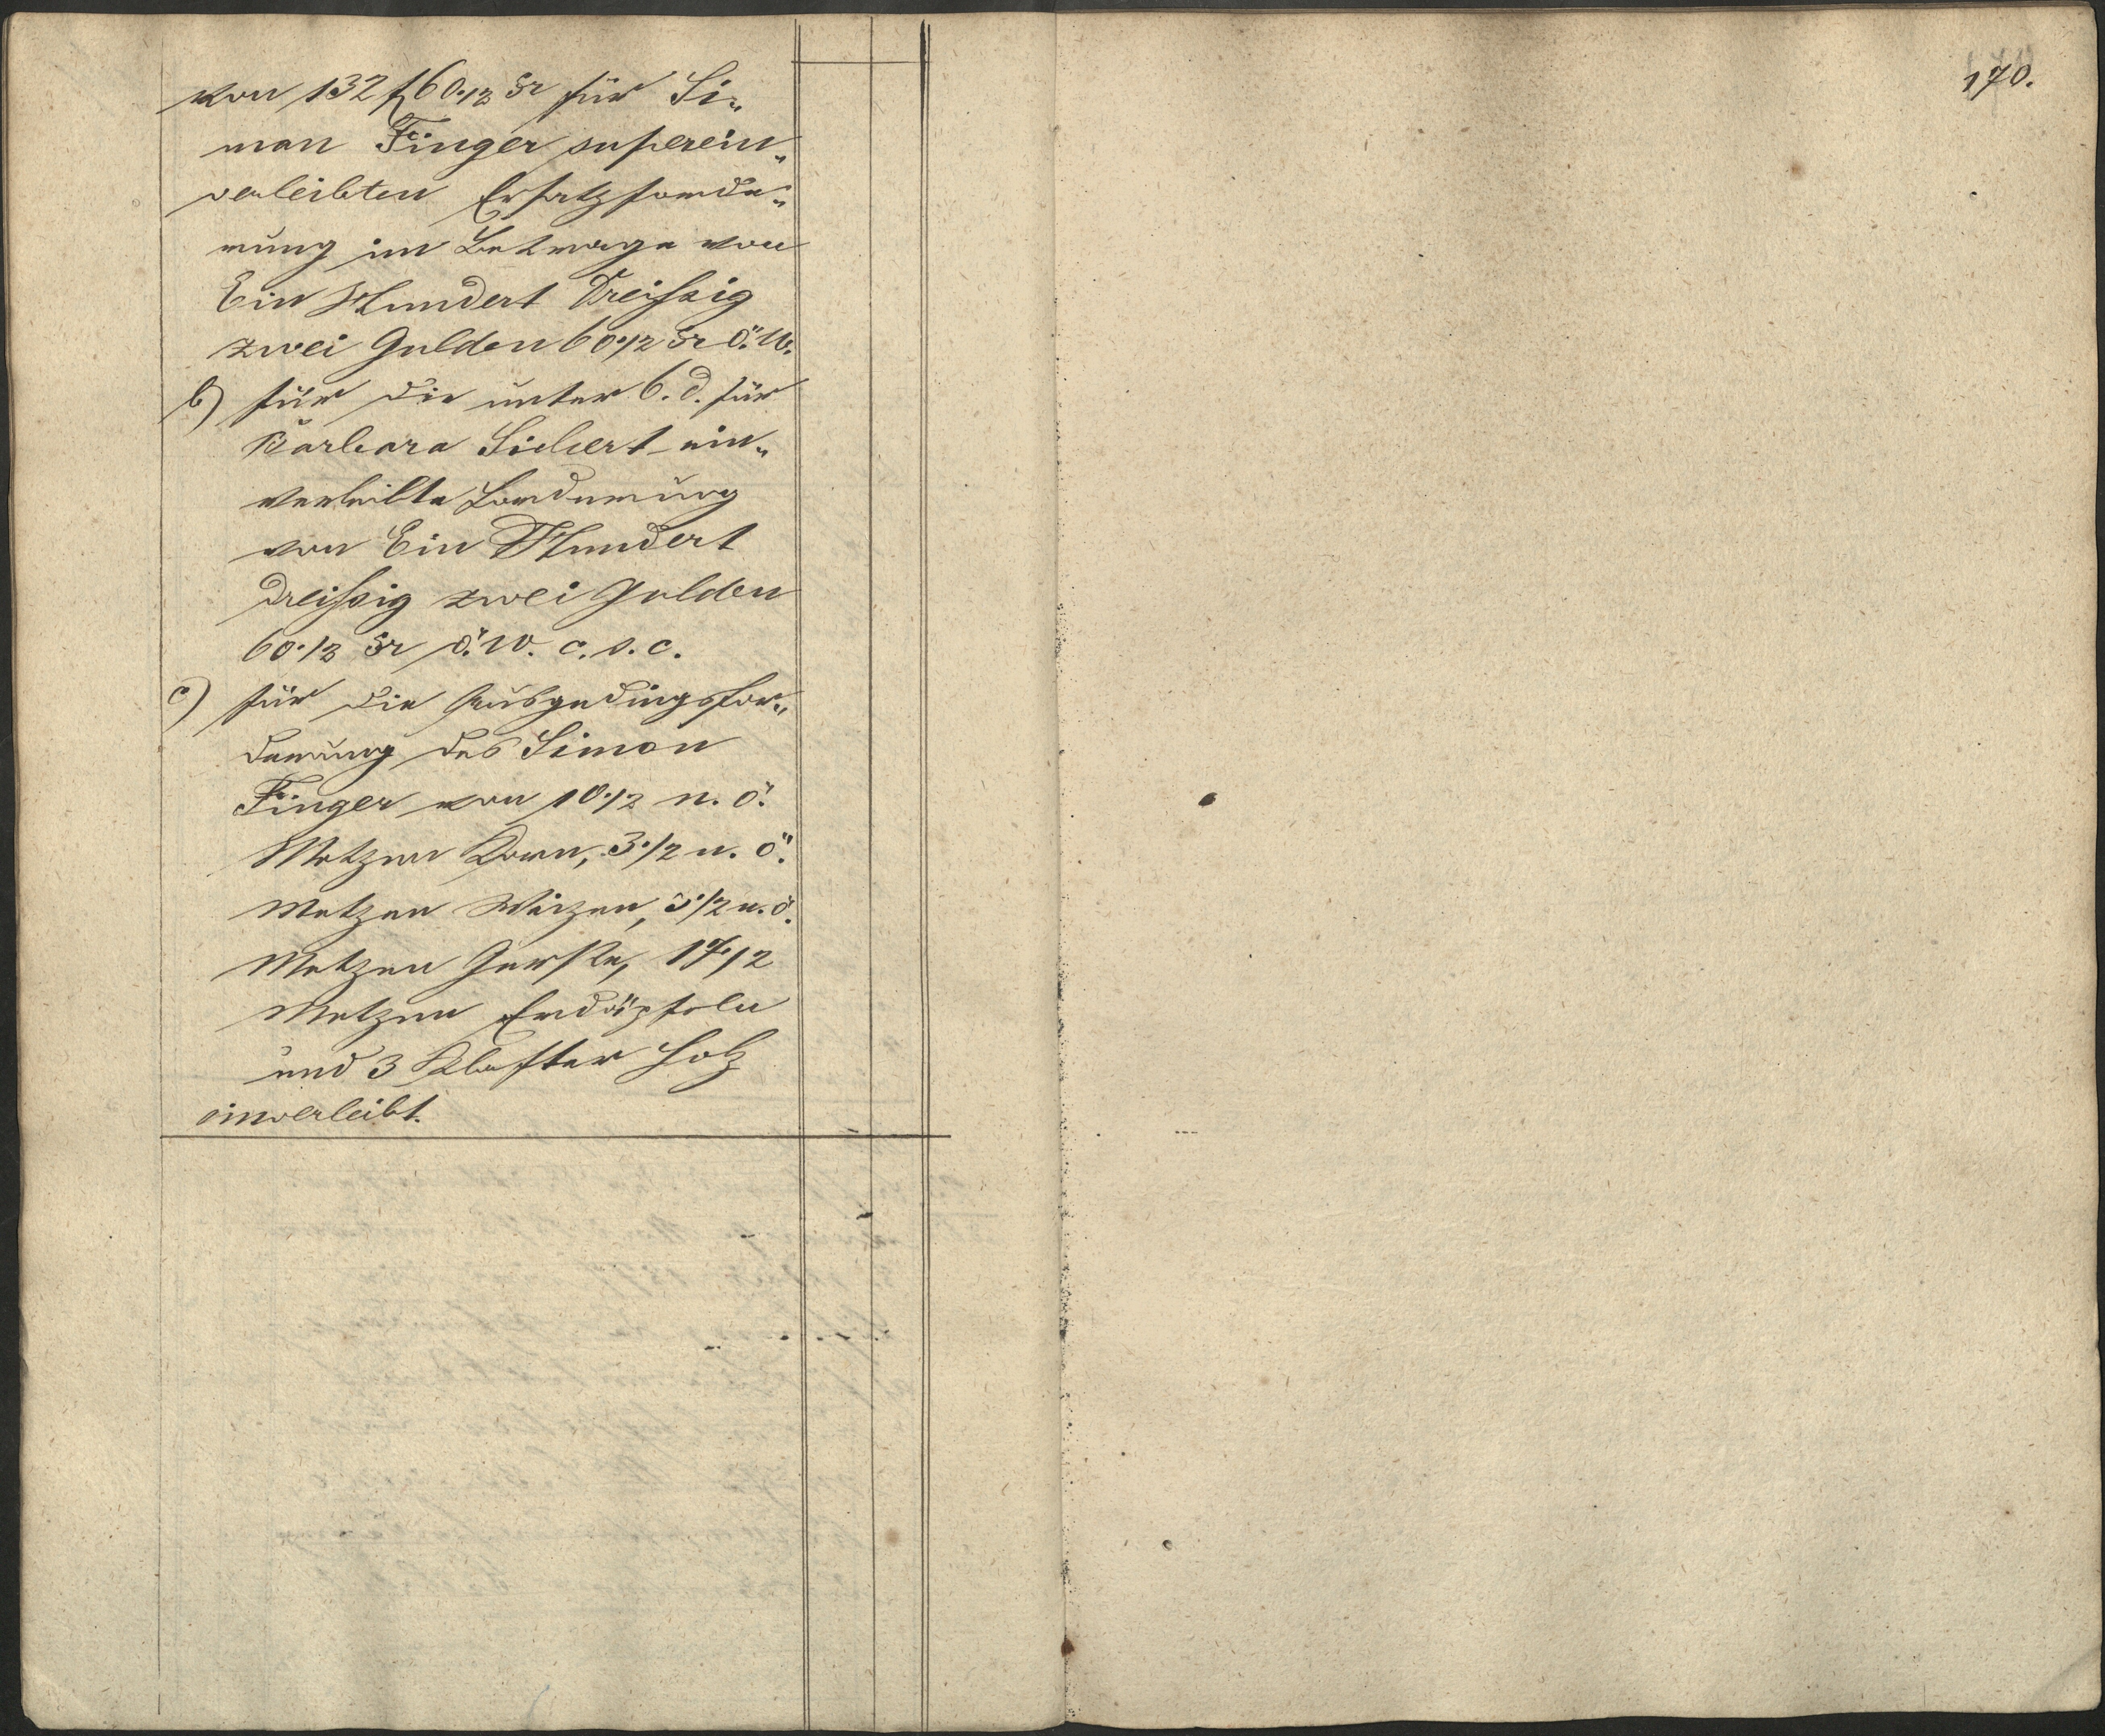 von 132 f 60·1/2 kr für Si„
mon Finger superein„
verleibten Ersatzforde„
rung im Betrage von
Ein Hundert Dreißig
zwei Gulden 60·1/2 kr ö. W.
b) für die unter 6. d. für
Barbara Siebert ein„
verleibte Forderung
von Ein Hundert
dreißig zwei Gulden
60·1/2 kr ö. W. c. s. c.
c) für die Ausgedingsfor„
derung des Simon
Finger von 10·1/2 n. ö.
Metzen Korn, 3·1/2 n. ö.
Metzen Waizen, 3·1/2 n. ö.
Metzen Gerste, 17·1/2
Metzen Erdäpfeln
und 3 Klafter Holz
einverleibt.
170.